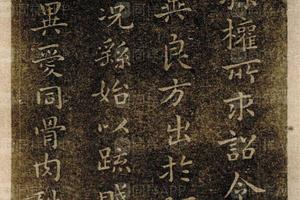 權所求詔令
冀良方出於
況繇始以疏賤
異愛同骨肉